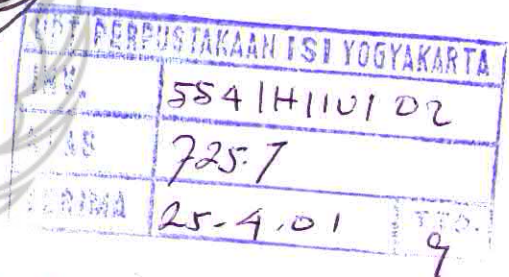 UPT PERPUSTAKAAN ISI YOGYAKARTA
INV. 554/H/IV/02
KLAS 725.7
TERIMA 25-4.01 TTD.